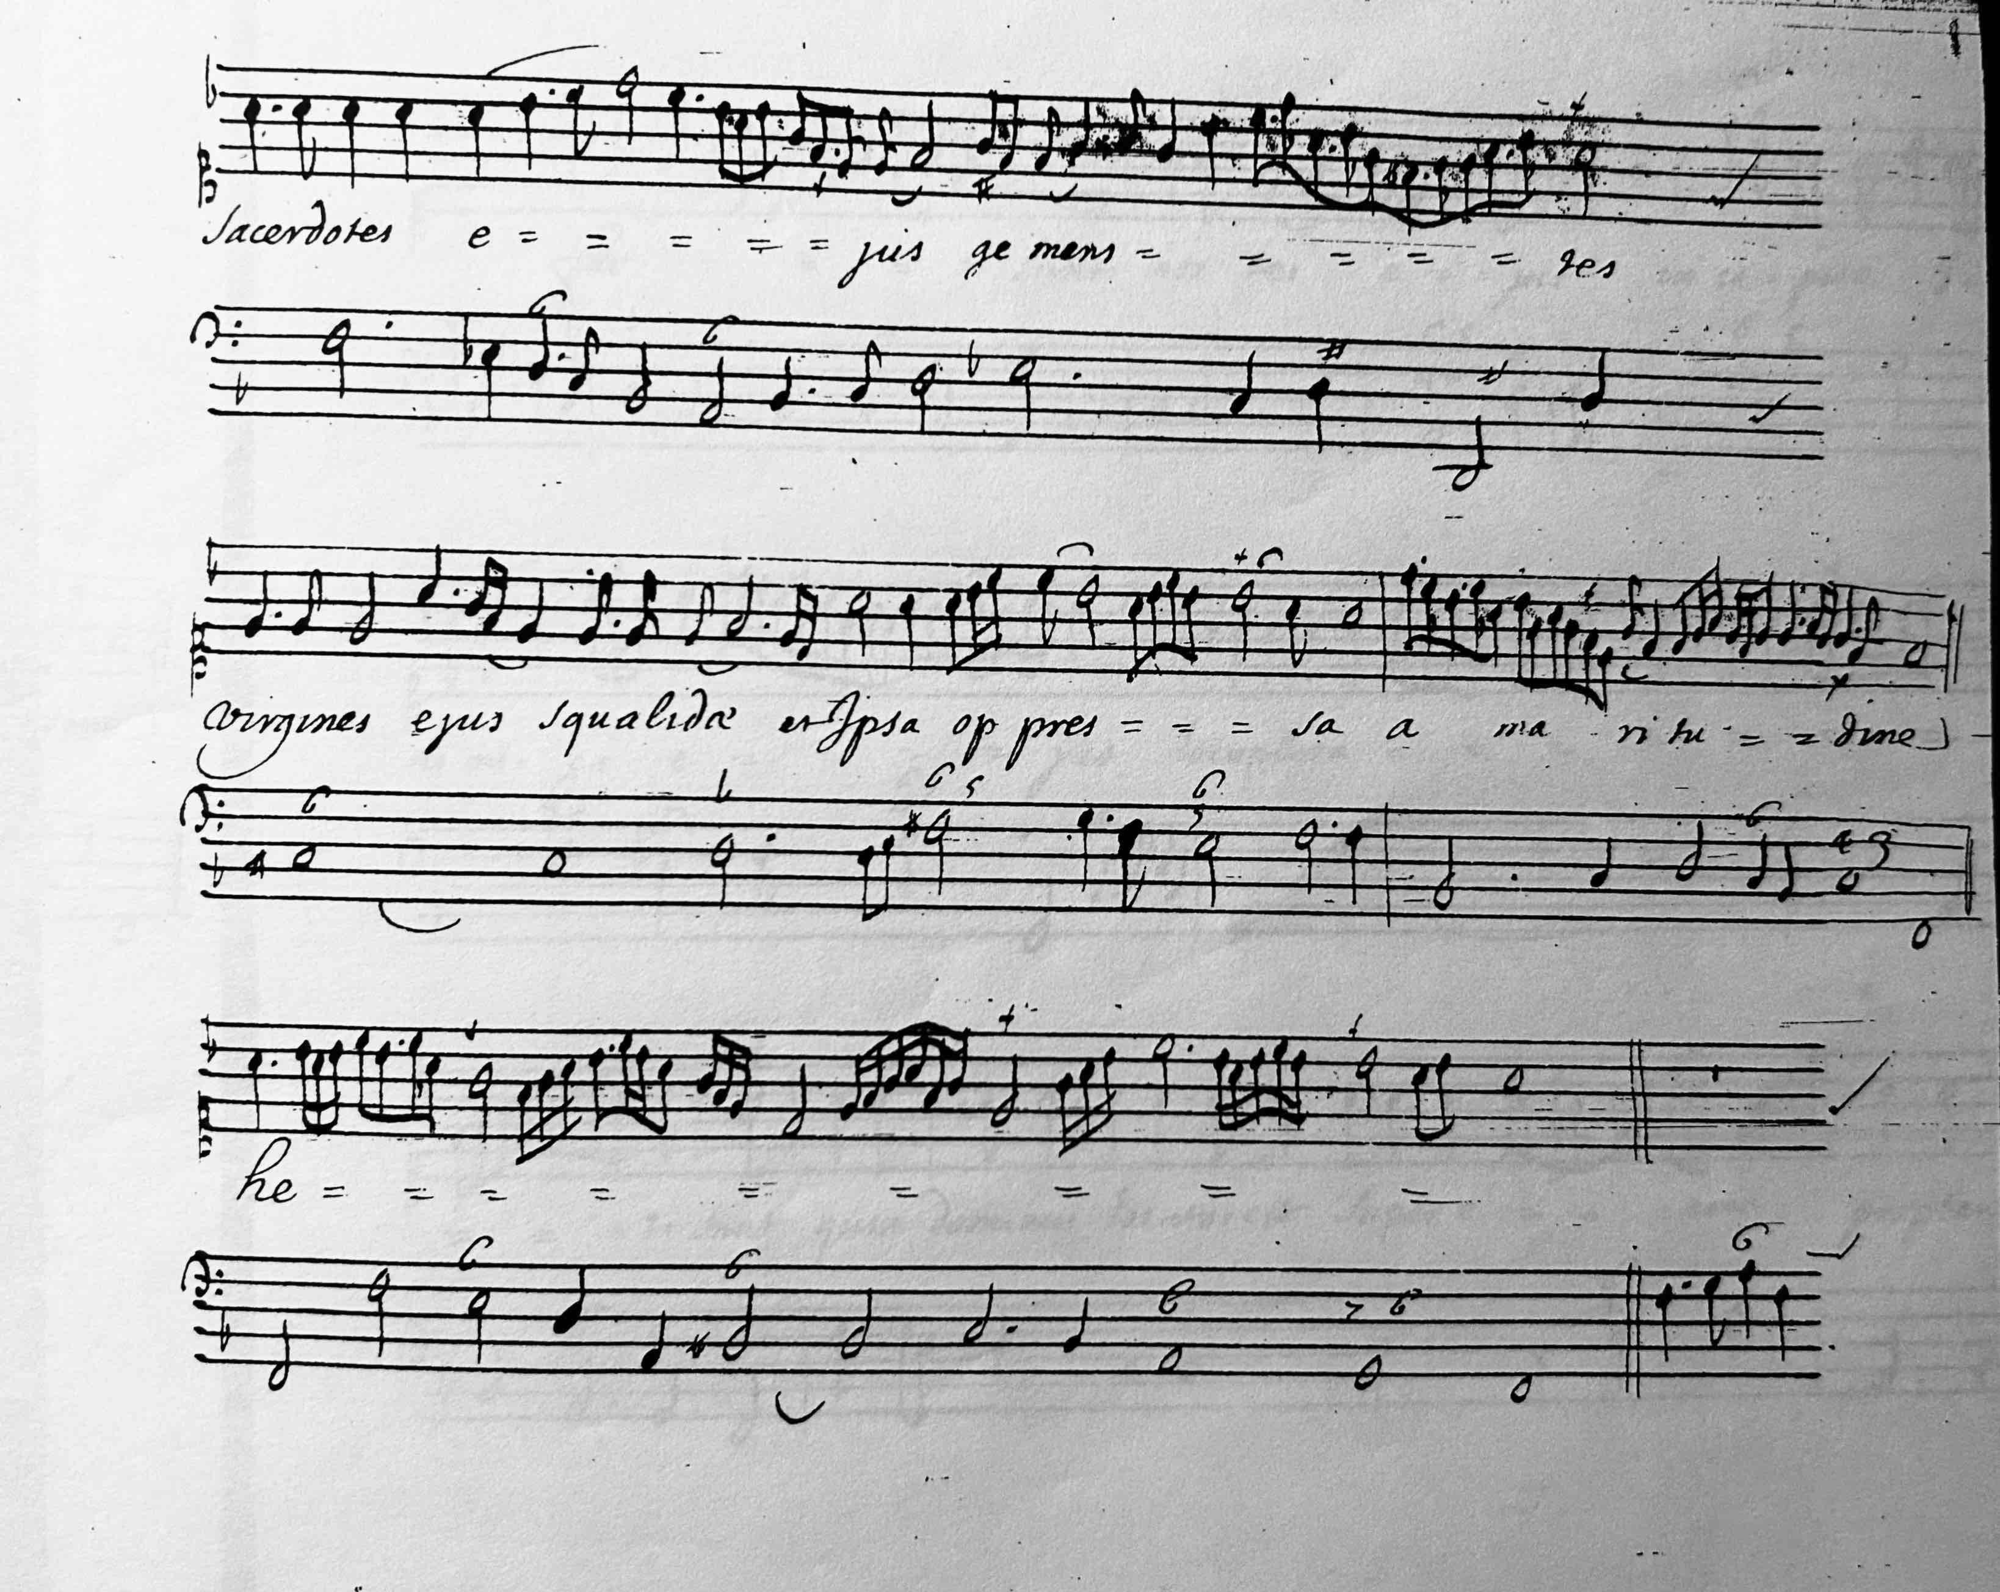 sacerdotes e = = = = = jus ge mens = = = = = tes
6 6
virgines ejus squalidæ et Ipsa op pres = = = sa a ma ri tu = = dine
6 6 5 6 5 6 4 3
he = = = = = = = = =
6 6 6 7 6 6